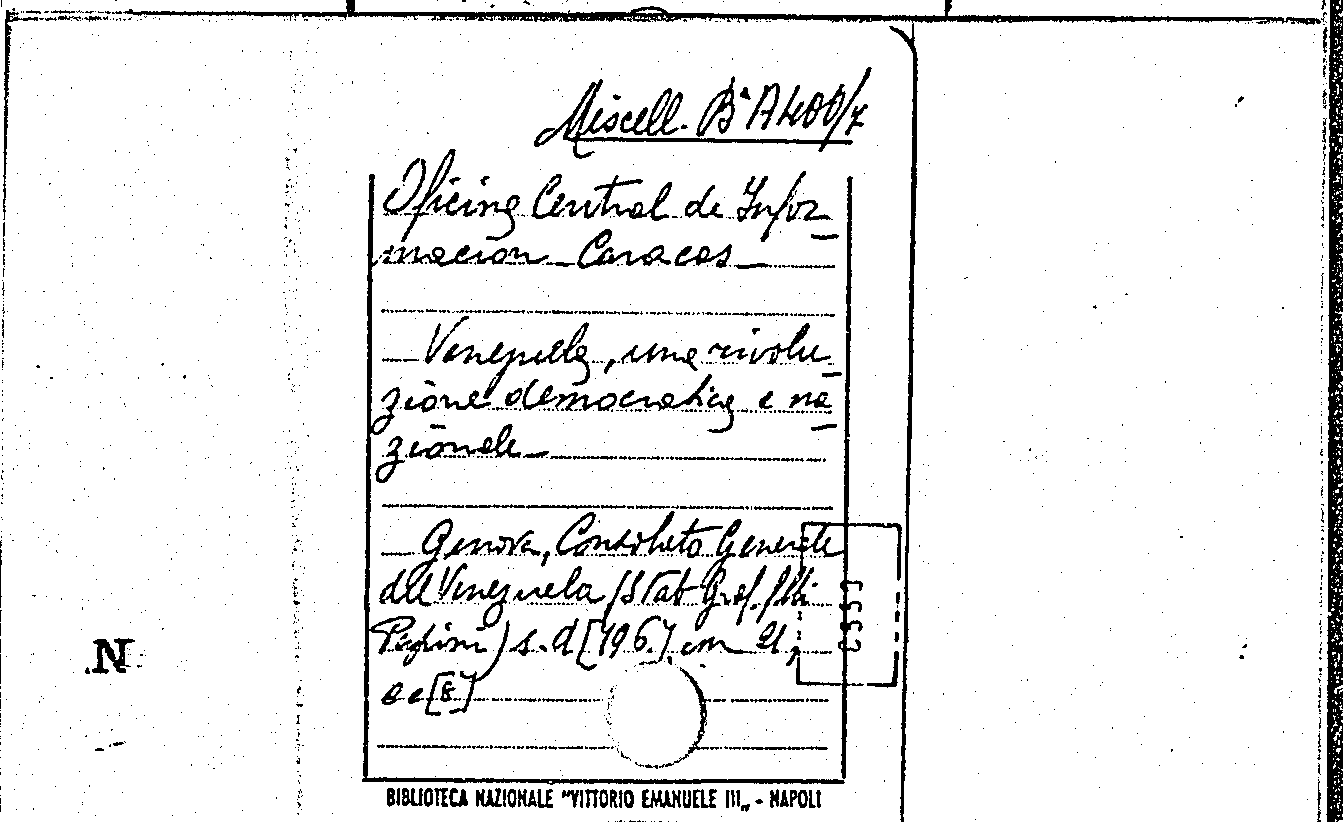 Miscell. Bª A400/7
Oficina Central de Infor
macion - Caracas -
Venezuela, una rivolu
zione democratica e na
zionale -
Genova, Consolato Generale
del Venezuela (Stab. Graf. f.lli
Pagano) s.d. [196.] cm 21,
cc [8]
N
BIBLIOTECA NAZIONALE "VITTORIO EMANUELE III„ - NAPOLI